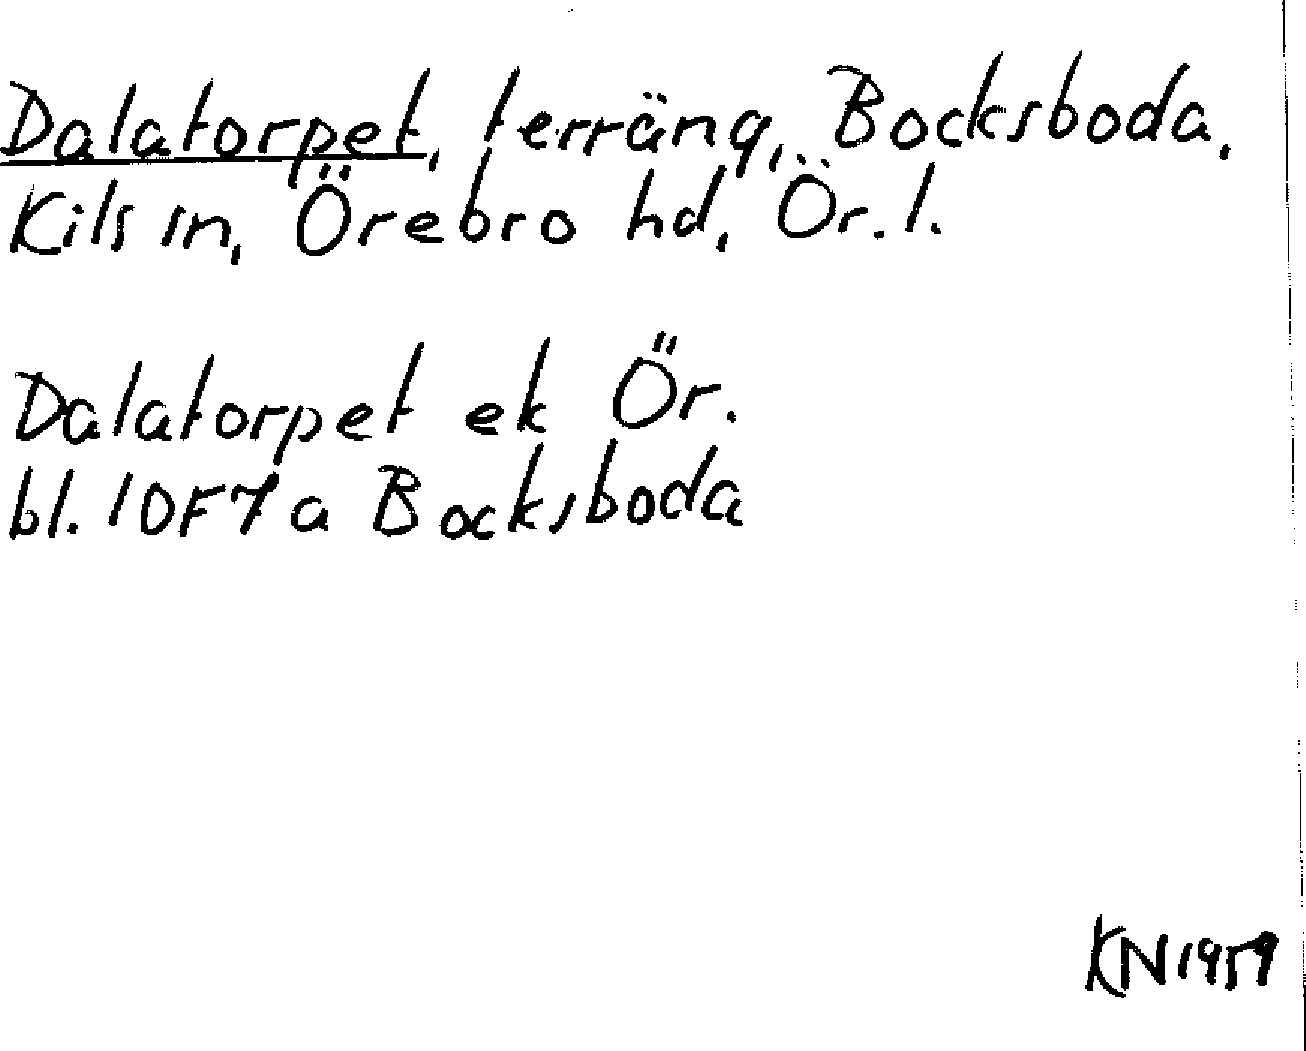 Dalatorpet, terräng, Bocksboda,
Kils sn, Örebro hd, Ör. l.
Dalatorpet ek Ör.
bl. 10F7a Bocksboda
KN 1959